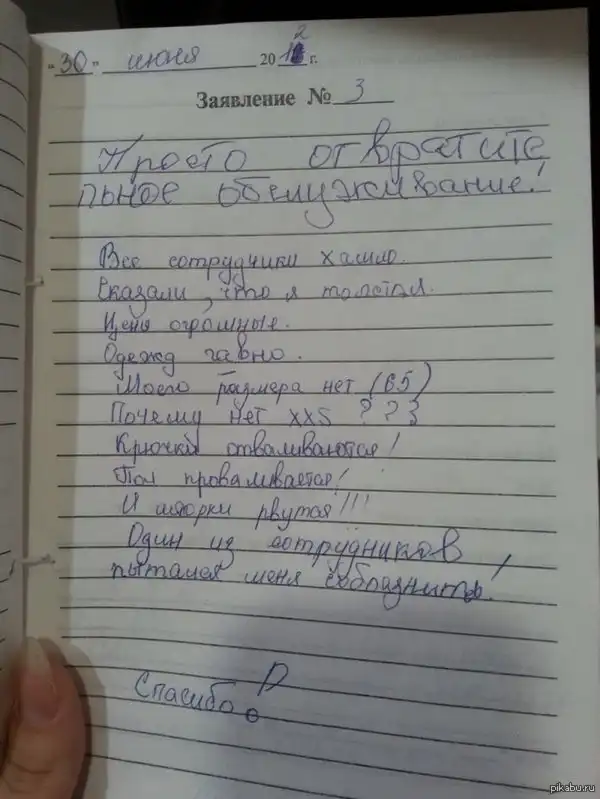 "30" июня 2012 г.
Заявление № 3
Просто отвратите
льное обслуживание!
Все сотрудчики хамло.
Сказали, что я толстая.
Цены огромные.
Одежд гавно.
Моего размера нет (65)
Почему нет XXS ???
Крючки отваливаются!
Пол проваливается!
И шторки рвутся!!!
Один из сотрудников
пытался меня соблазнить!
Спасибо
pikabu.ru